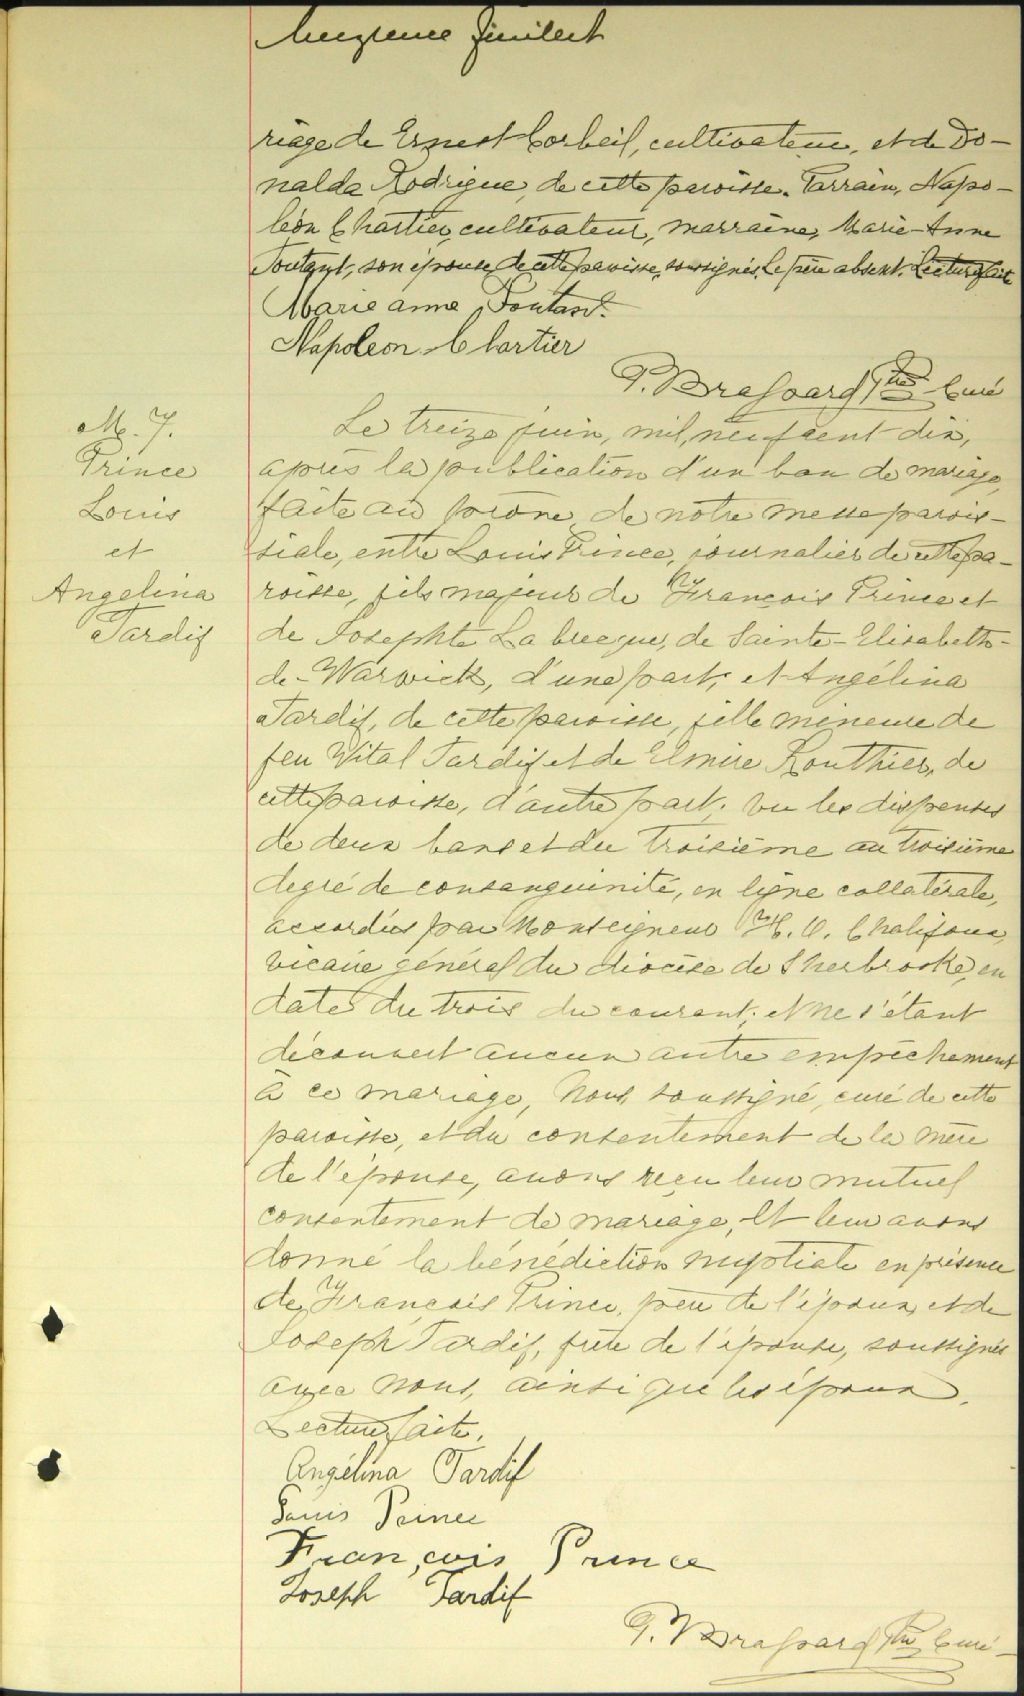 riage de Ernest Corbeil, cultivateur, et de Do-
nalda Rodrigue, de cette paroisse. Parrain, Napo-
léon Chartier, cultivateur, marraine, Marie-Anne
Toutant, son épouse, de cette paroisse, soussignés. Le père absent. Lecture faite
Marie anne Toutant.
Napoleon Chartier
P. Brassard Ptre Curé
M. 7.
Prince
Louis
et
Angelina
Tardif
Le treize juin, mil neuf cent dix,
après la publication d'un ban de mariage,
faite au prône de notre messe parois-
siale, entre Louis Prince, journalier de cette pa-
roisse, fils majeur de François Prince et
de Josephte Labrecque, de Sainte-Elisabeth-
de-Warwick, d'une part, et Angélina
Tardif, de cette paroisse, fille mineure de
feu Vital Tardif et de Elmire Routhier, de
cette paroisse, d'autre part; vu les dispenses
de deux bans et du troisième au troisième
degré de consanguinité, en ligne collatérale,
accordées par Monseigneur H. O. Chalifoux,
vicaire général du diocèse de Sherbrooke, en
date du trois du courant; et ne s'étant
découvert aucun autre empêchement
à ce mariage, Nous, soussigné, curé de cette
paroisse, et du consentement de la mère
de l'épouse, avons reçu leur mutuel
consentement de mariage, et leur avons
donné la bénédiction nuptiale en présence
de François Prince, père de l'époux, et de
Joseph Tardif, frère de l'épouse, soussignés
avec nous, ainsi que les époux.
Lecture faite.
Angélina Tardif
Louis Prince
François Prince
Joseph Tardif
P. Brassard Ptre Curé